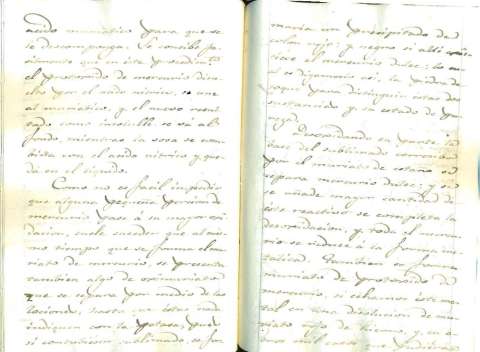 acido muriatico para que se
le descomponga. Se concibe fa-
cilmente que en este procedimto
el protoxido de mercurio disu-
elto por el acido nitrico, se une
al muriatico, y el nuevo muri-
ato como insoluble se vá al
fondo, mientras la sosa se com-
bina con el acido nitrico y que-
da en el liquido.
Como no es facil impedir
que alguna pequeña porcion de
mercurio pase á su mayor oxi-
dacion, suele suceder que al mis-
mo tiempo que se forma el mu-
riato de mercurio, se presenta
tambien algo de oximuriato
que se separa por medio de las
lociones, hasta que estas nada
indiquen con la potasa, pues
si contuvieran sublimado se for-
maria un precipitado de
color rojo, y negro si alli
el mercurio dulce: lo
si es digamoslo asi, la piedra de
toque para distinguir estas dos
sustancias y su estado de pu-
reza.
Desoxidando en parte la
base del sublimado corrosivo
por el muriato de estaño se
separa mercurio dulce; y si
se añade mayor cantidad de
este reactivo se completa la
desoxidacion, y todo el mercu-
rio se reduce á la forma me-
talica. Tambien se forma
muriato de protoxido de
mercurio, si echamos este me-
tal en una disolucion de mu-
riato de hierro, y en
otros mil casos que pudieran